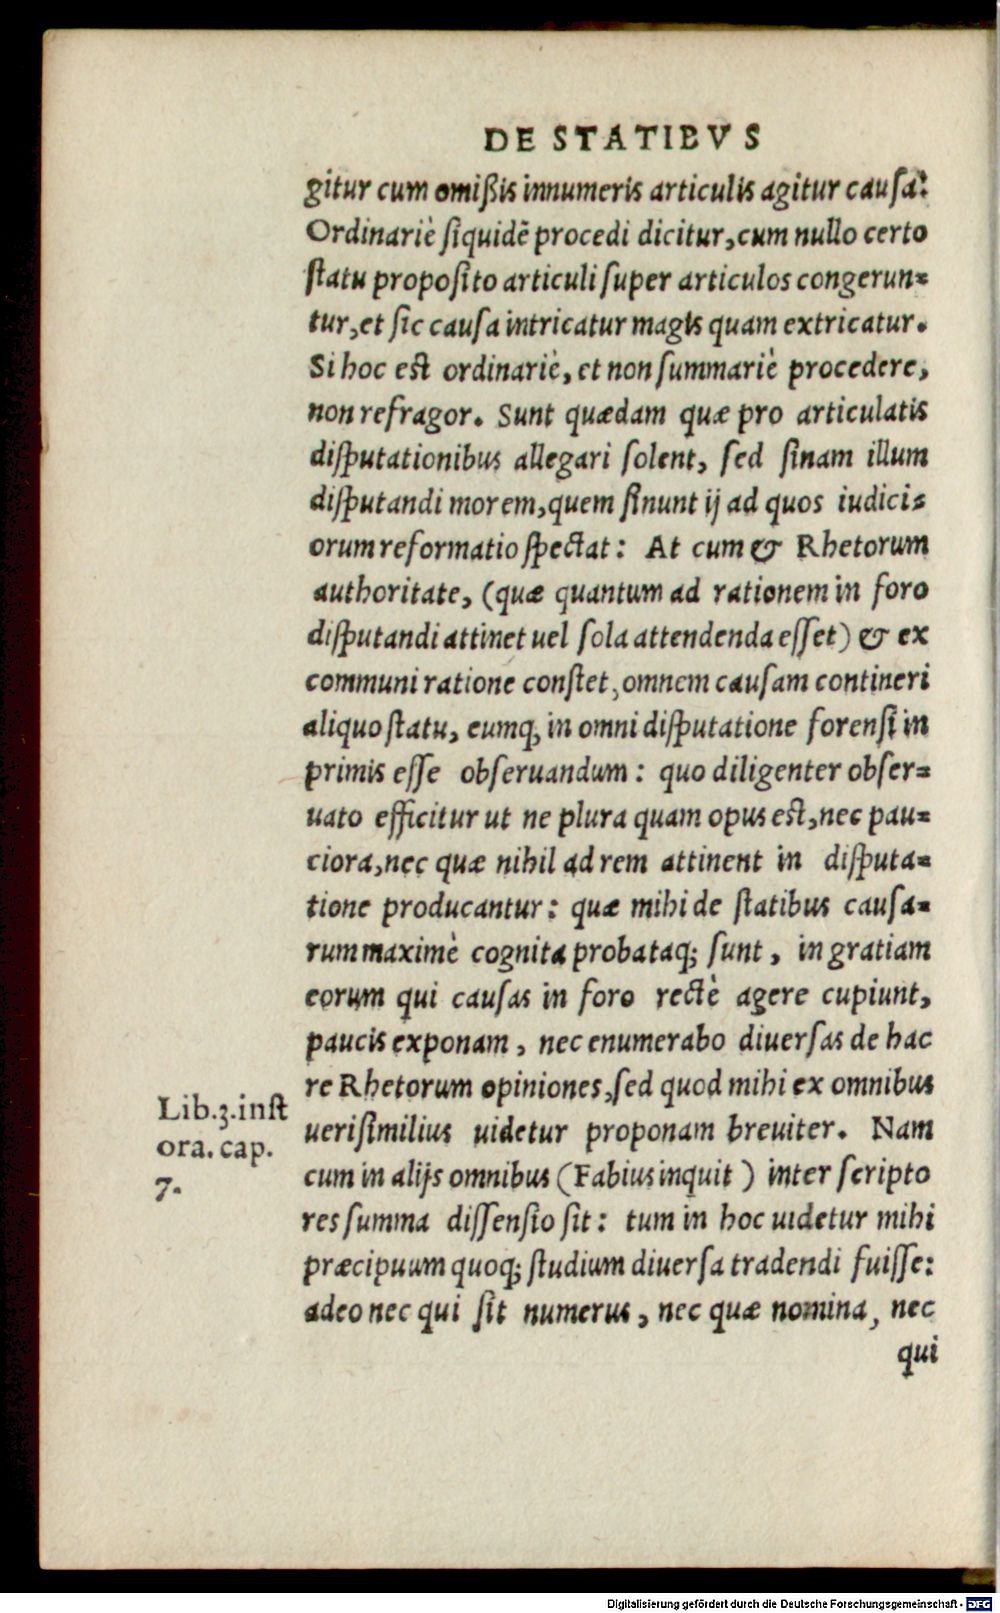 DE STATIBVS
gitur cum omißis innumeris articulis agitur causa?
Ordinariè siquidẽ procedi dicitur, cum nullo certo
statu proposito articuli super articulos congerun=
tur, et sic causa intricatur magis quam extricatur.
Si hoc est ordinariè, et non summariè procedere,
non refragor. Sunt quædam quæ pro articulatis
disputationibus allegari solent, sed sinam illum
disputandi morem, quem sinunt ij ad quos iudici=
orum reformatio spectat: At cum & Rhetorum
authoritate, (quæ quantum ad rationem in foro
disputandi attinet uel sola attendenda esset) & ex
communi ratione constet, omnem causam contineri
aliquo statu, eumq; in omni disputatione forensi in
primis esse obseruandum: quo diligenter obser=
uato efficitur ut ne plura quam opus est, nec pau=
ciora, nec quæ nihil ad rem attinent in disputa=
tione producantur: quæ mihi de statibus causa=
rum maximè cognita probataq; sunt, in gratiam
eorum qui causas in foro rectè agere cupiunt,
paucis exponam, nec enumerabo diuersas de hac
re Rhetorum opiniones, sed quod mihi ex omnibus
uerisimilius uidetur proponam breuiter. Nam
cum in alijs omnibus (Fabius inquit) inter scripto
res summa dissensio sit: tum in hoc uidetur mihi
præcipuum quoq; studium diuersa tradendi fuisse:
adeo nec qui sit numerus, nec quæ nomina, nec
qui
Lib.3.inst
ora. cap.
7.
Digitalisierung gefördert durch die Deutsche Forschungsgemeinschaft - DFG